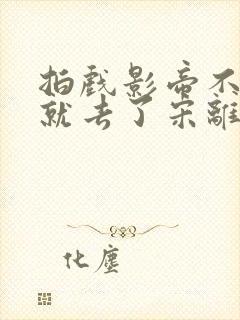 拍戲影帝不
就去了宋離
化塵